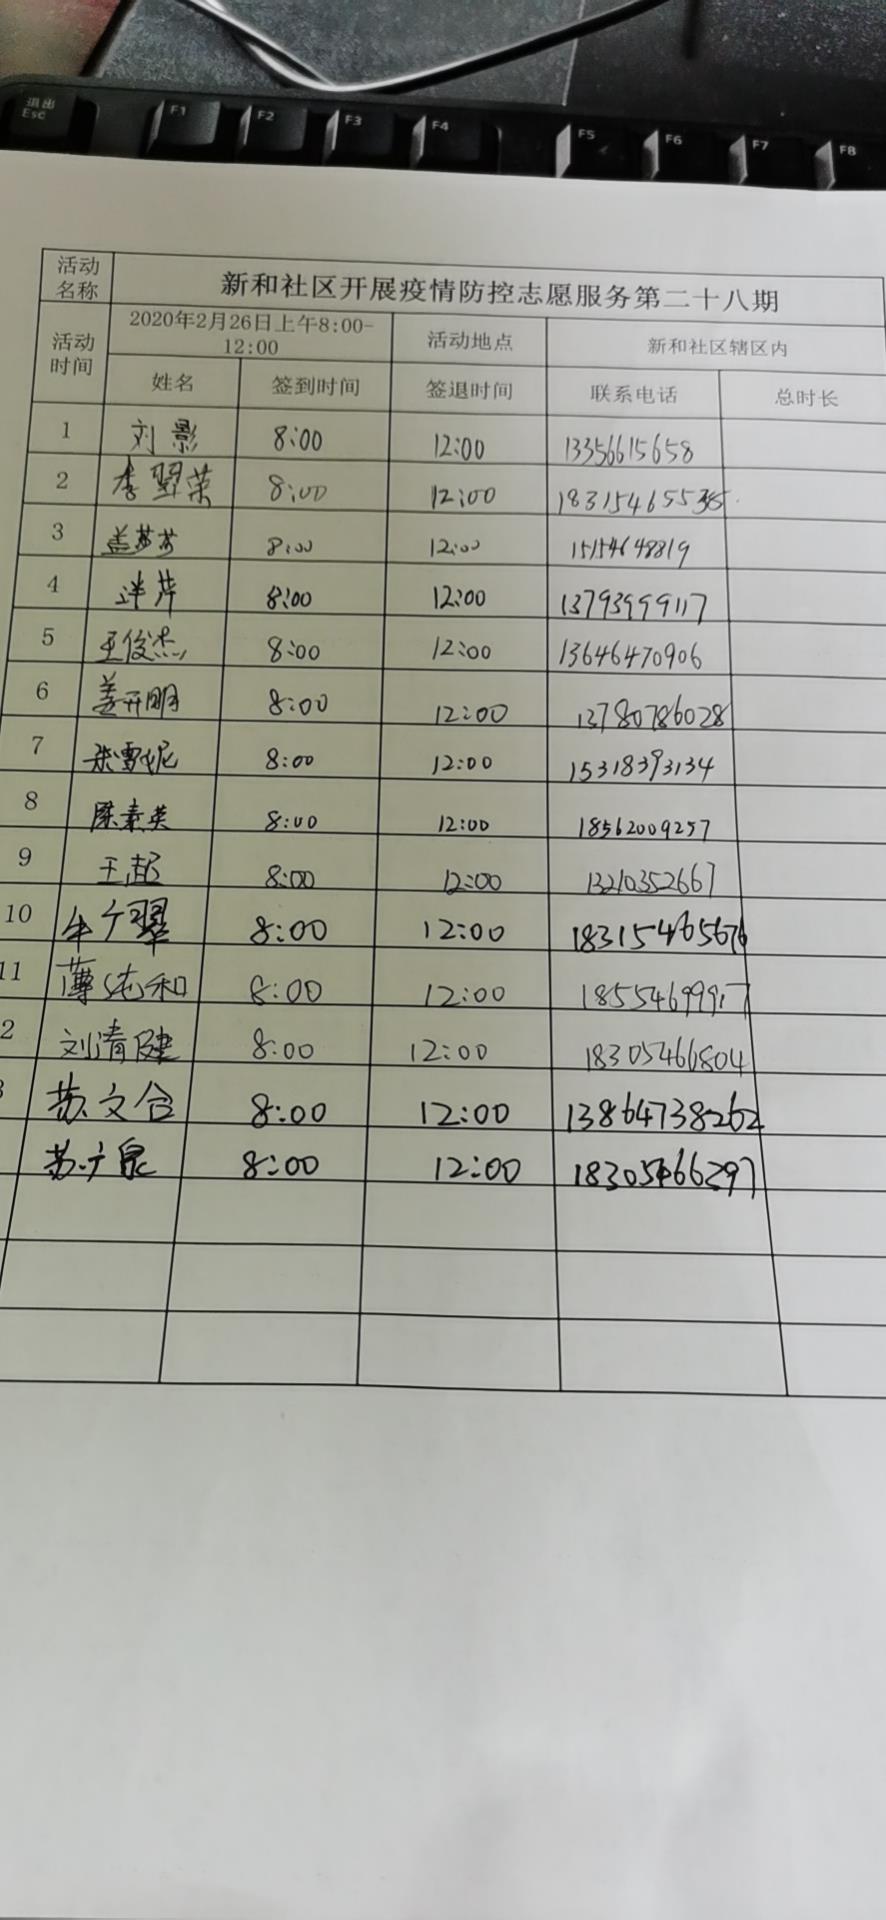 退出
Esc F1 F2 F3 F4 F5 F6 F7 F8
活动
名称 新和社区开展疫情防控志愿服务第二十八期
活动
时间 2020年2月26日上午8:00-
12:00 活动地点 新和社区辖区内
姓名 签到时间 签退时间 联系电话 总时长
1 刘影 8:00 12:00 13356615658
2 李翠荣 8:00 12:00
3 盖芬芬 8:00 12:00 15154648819
4 8:00 12:00 13793999117
5 王俊杰 8:00 12:00 13646470906
6 姜开明 8:00 12:00 13780786028
7 8:00 12:00 15318393134
8 陈素英 8:00 12:00 18562009257
9 王超 8:00 12:00 13210352667
10 牛广翠 8:00 12:00 18315465676
11 薄纯和 8:00 12:00 18554699917
2 刘清健 8:00 12:00 18305466804
3 苏文合 8:00 12:00 13864738262
苏广泉 8:00 12:00 18305466297